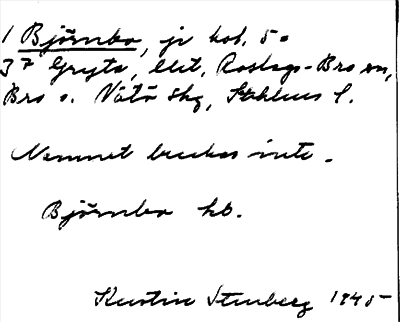 1 Björnbo, jr kol. 5 =
3 7 Gryta, by, Roslags-Bro sn,
Bro o. Vätö skg, Sthlms l.
Namnet brukas inte.
Björnbo hb.
Kerstin Stenberg 1945